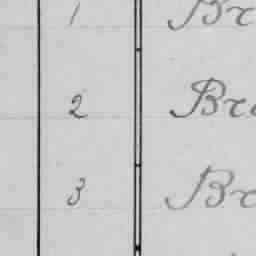 1 Br
2 Bro
3 Br